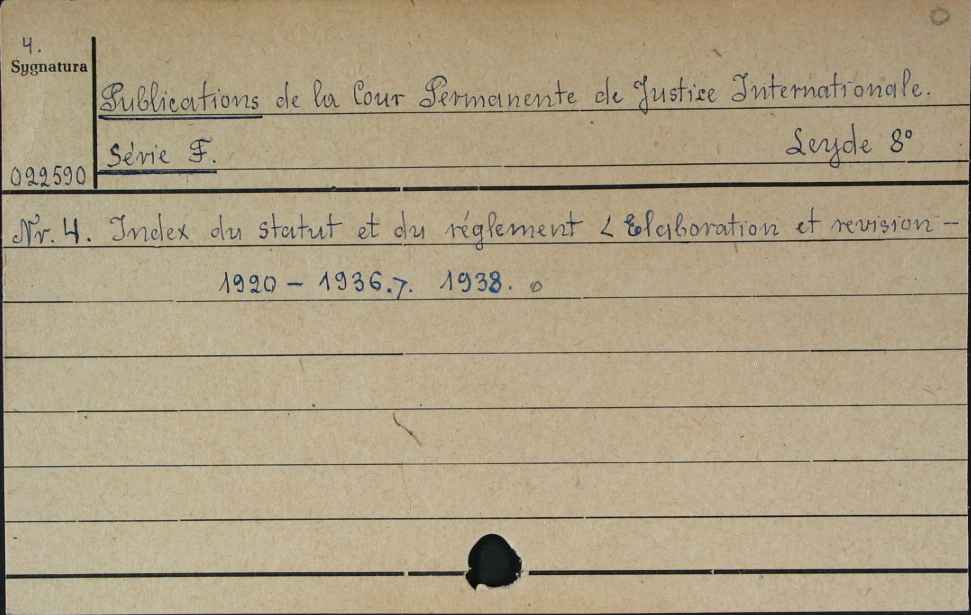 4.
Sygnatura
Publications de la Cour Permanente de Justice Internationale.
Série F. Leyde 8°
022590
Nr. 4. Index du statut et du réglement < Elaboration et revision -
1920 - 1936.7. 1938.